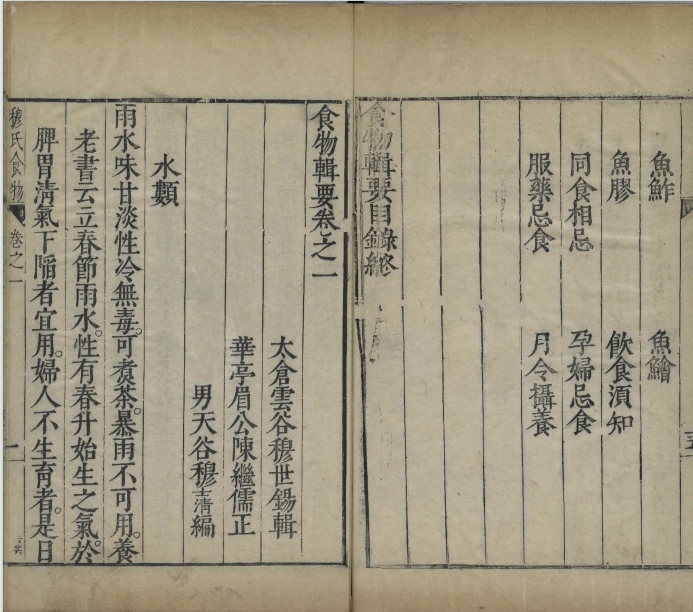 魚鮓　魚鱠
魚膠　飲食須知
同食相忌　孕婦忌食
服藥忌食　月令攝養
食物輯要目錄終
食物輯要卷之一
太倉雲谷穆世鍚輯
華亭眉公陳繼儒正
男天谷穆士清編
水類
雨水味甘淡性冷無毒。可煑茶。暴雨不可用。養
老書云立春節雨水。性有春升始生之氣。於
脾胃清氣下陷者宜用。婦人不生育者。是日
穆氏食物　卷之一　一